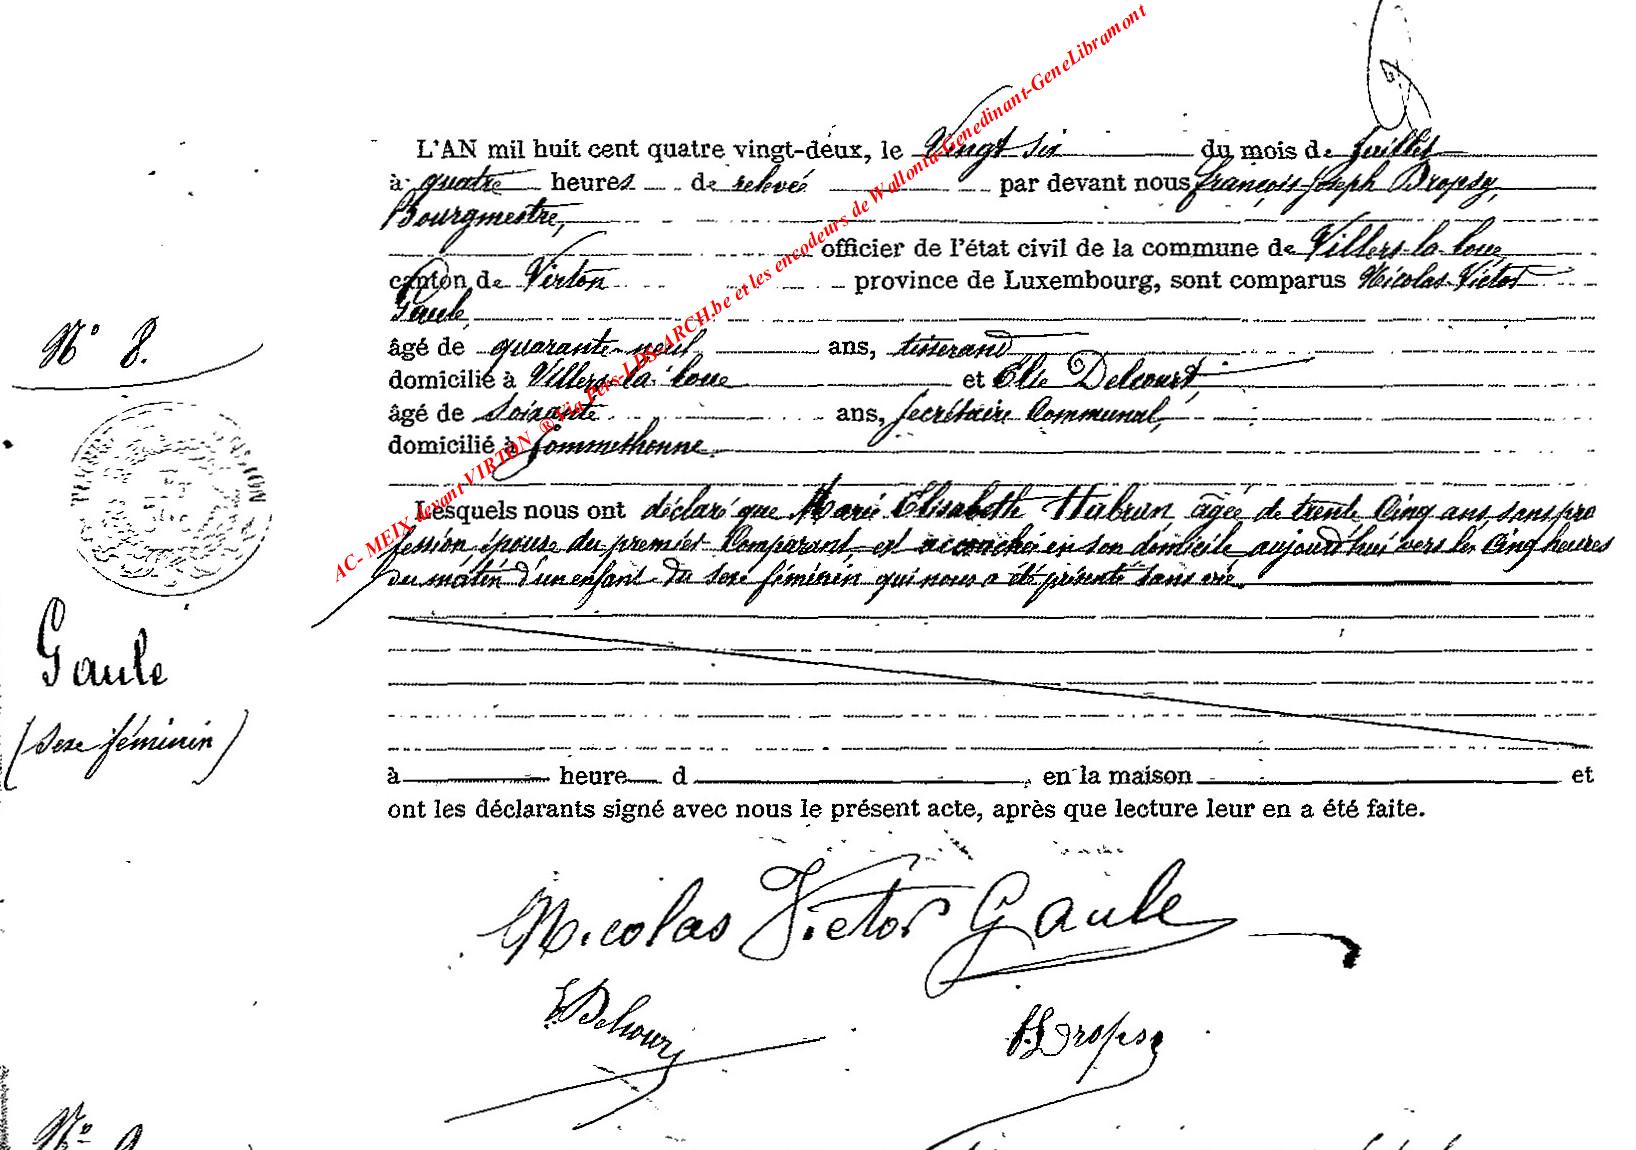 L'AN mil huit cent quatre vingt-deux, le Vingt six du mois de Juillet
à quatre heures de relevée par devant nous françois Joseph Dropsy,
Bourgmestre,
officier de l'état civil de la commune de Villers-la-loue
canton de Virton province de Luxembourg, sont comparus Nicolas Victor
Gaule,
âgé de quarante-neuf ans, tisserand
domicilié à Villers-la-loue et Elie Delcourt,
âgé de Soixante ans, Secrétaire Communal,
domicilié à Sommethonne.
Lesquels nous ont déclaré que Marie Elisabeth Habran âgée de trente Cinq ans, sans pro
fession épouse du premier Comparant, est accouchée en son domicile aujourd'hui vers les Cinq heures
du matin d'un enfant du sexe féminin qui nous a été présenté sans vie.
à heure d , en la maison et
ont les déclarants signé avec nous le présent acte, après que lecture leur en a été faite.
Nicolas Victor Gaule
E Delcourt
fJ Dropsy
N° 8.
Gaule
(Sexe féminin)
N° 9
AC- MEIX devant VIRTON ® Via Pers-LDS-ARCH.be et les encodeurs de Wallonia-Genedinant-GeneLibramont